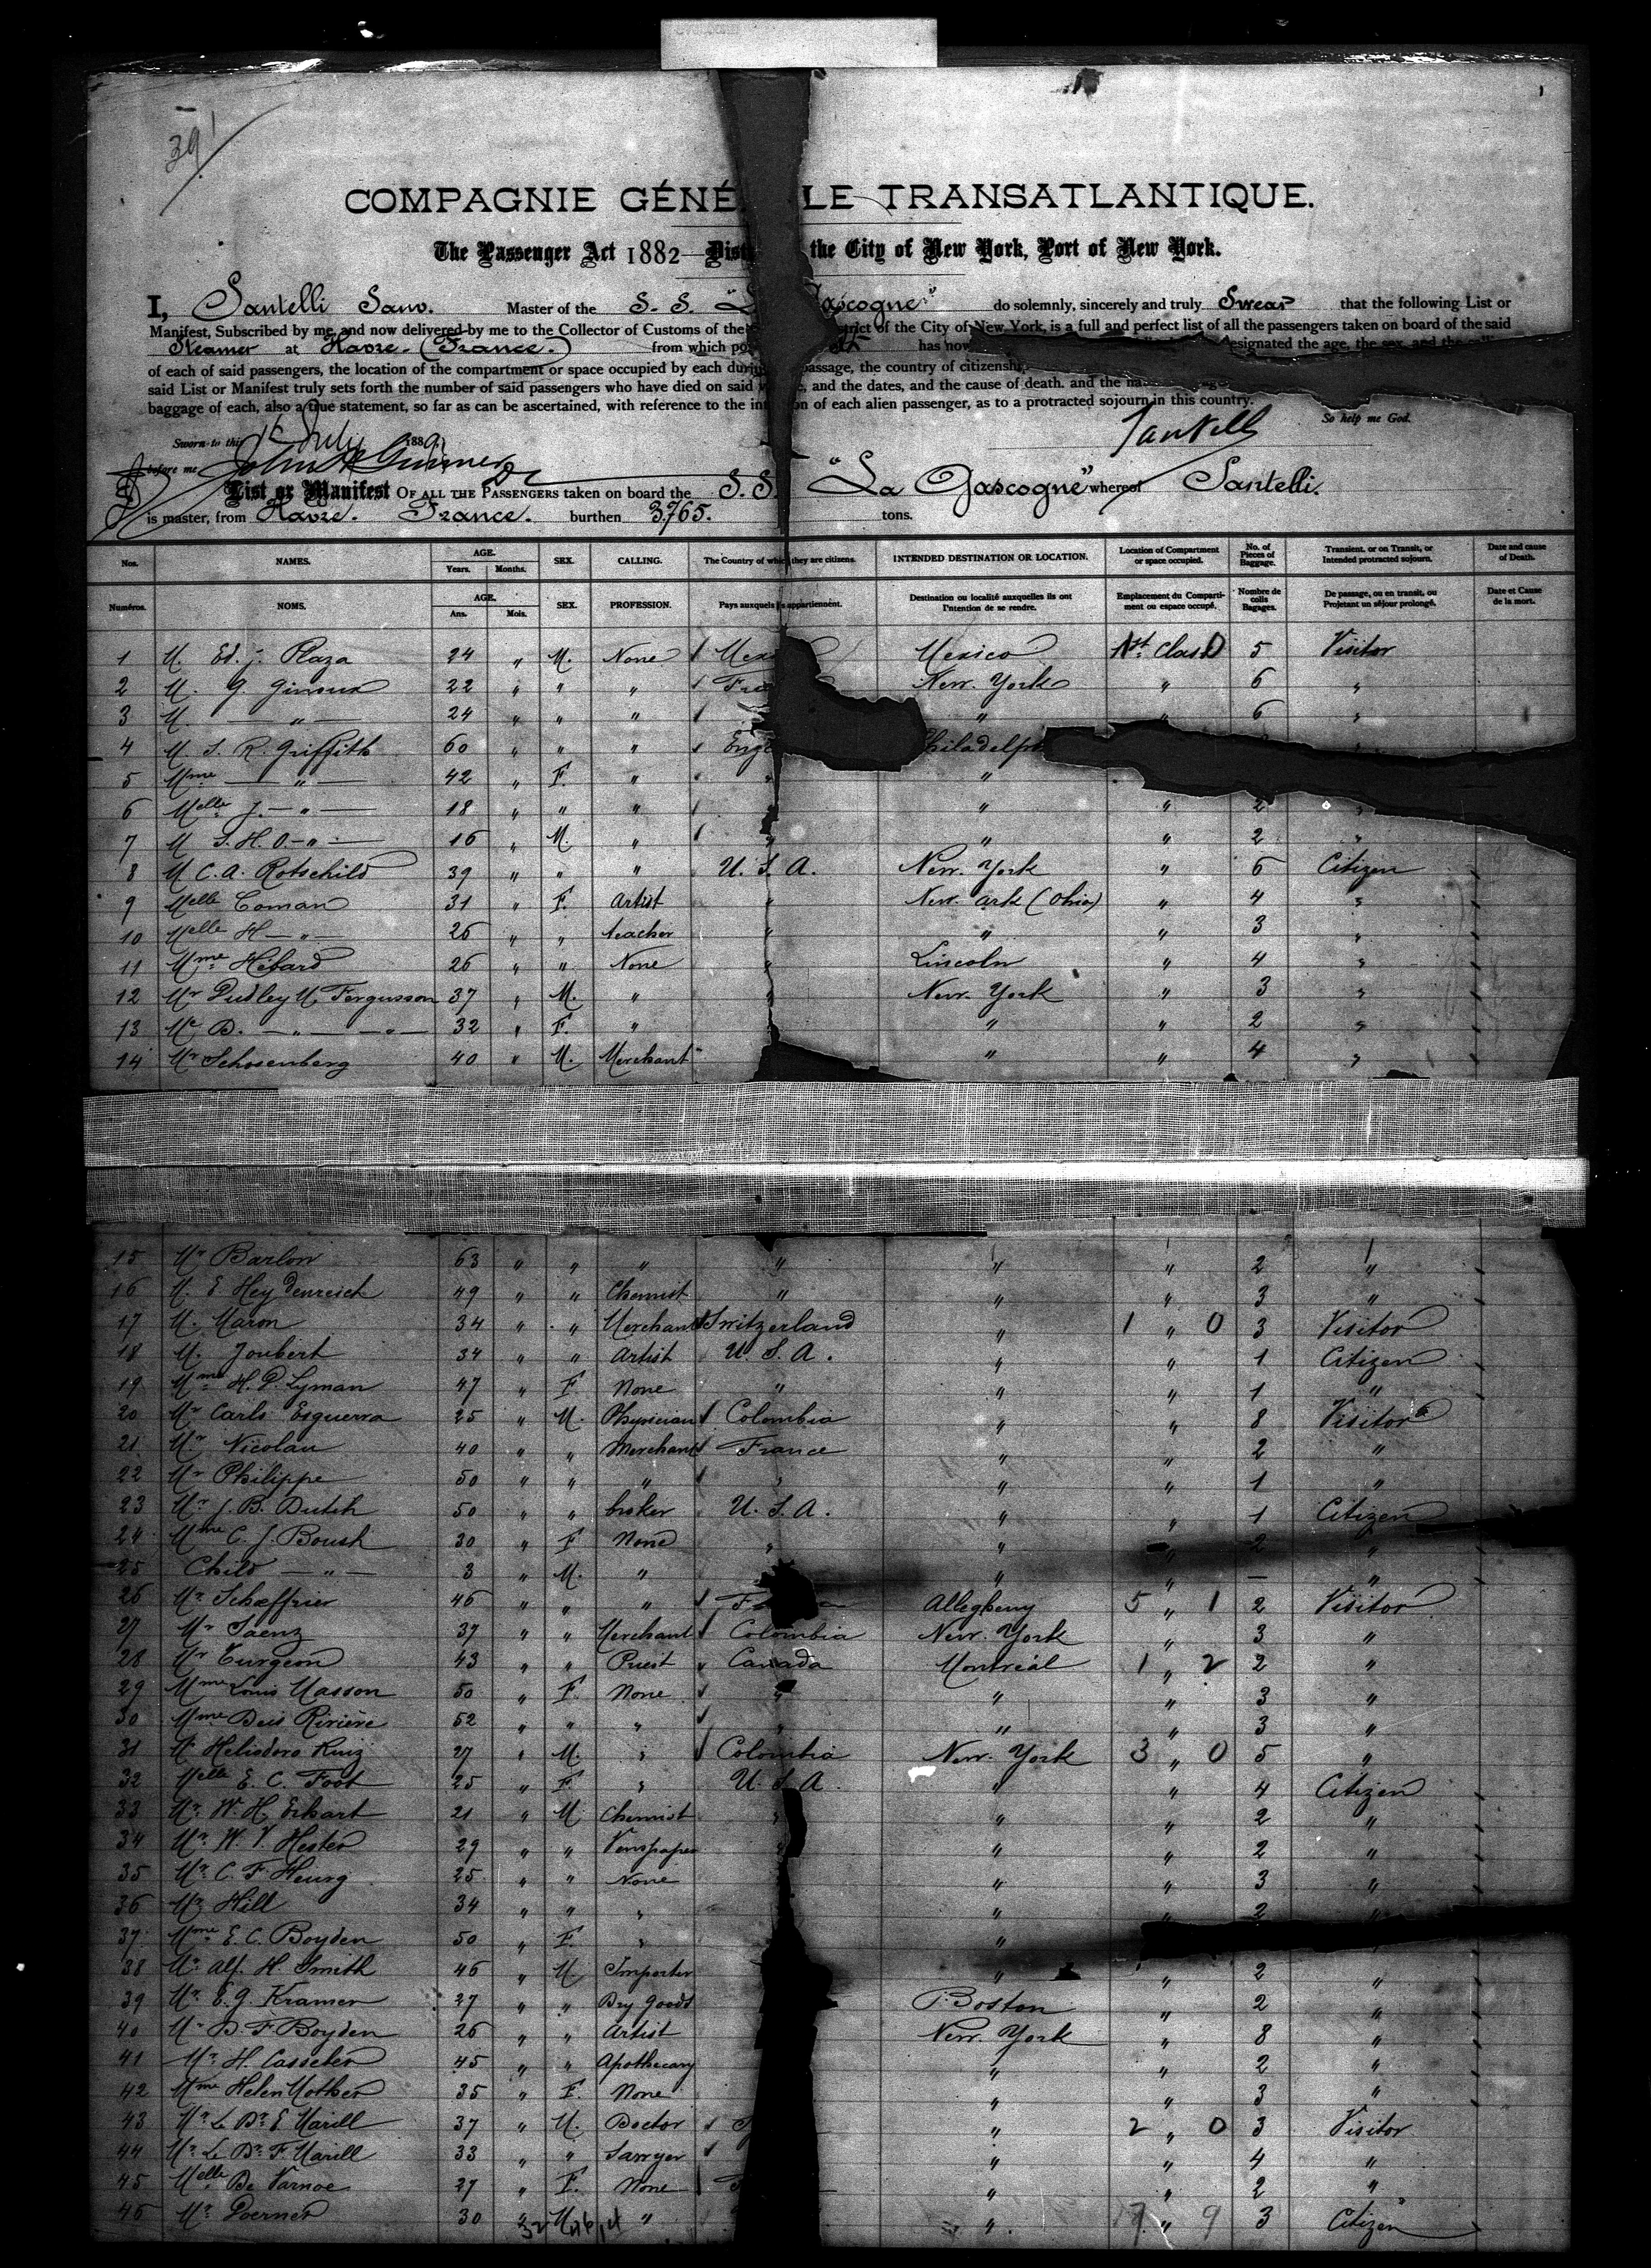 39
COMPAGNIE GÉNÉ LE TRANSATLANTIQUE.
The Passenger Act 1882 Dist the City of New York, Port of New York.
I, Santelli Sauv. Master of the S. S. "L Gascogne" do solemnly, sincerely and truly Swear that the following List or
Manifest, Subscribed by me, and now delivered by me to the Collector of Customs of the strict of the City of New York, is a full and perfect list of all the passengers taken on board of the said
Steamer at Havre. (France.) from which po has now esignated the age, the sex, and the
of each of said passengers, the location of the compartment or space occupied by each during passage, the country of citizenship
said List or Manifest truly sets forth the number of said passengers who have died on said and the dates, and the cause of death. and the
baggage of each, also a true statement, so far as can be ascertained, with reference to the in on of each alien passenger, as to a protracted sojourn in this country.
So help me God.
Sworn to this July 1889 Santelli
before me
List or Manifest OF ALL THE PASSENGERS taken on board the S. S. "La Gascogne" whereof Santelli.
is master, from Havre. France. burthen 3765. tons.
Nos. NAMES. AGE. Years. Months. SEX. CALLING. The Country of which they are citizens. INTENDED DESTINATION OR LOCATION. Location of Compartment or space occupied. No. of Pieces of Baggage. Transient, or on Transit, or Intended protracted sojourn. Date and cause of Death.
Numéros. NOMS. AGE. Ans. Mois. SEX. PROFESSION. Pays auxquels ils appartiennent. Destination ou localité auxquelles ils ont l'intention de se rendre. Emplacement du Compartiment ou espace occupé. Nombre de colis Bagages. De passage, ou en transit, ou Projetant un séjour prolongé. Date et Cause de la mort.
1 M. Ed. J. Plaza 24 " M. None Mex Mexico 1st Class 5 Visitor
2 M. G. Giroux 22 " " " Fra New. York " 6 "
3 M. — " — 24 " " " " " 6 "
4 M S. R. Griffith 60 " " " Engl Philadelph
5 Mme — " — 42 " F. " " "
6 Melle J. — " — 18 " " " " " " 2 "
7 M S. H. O. — " — 16 " M. " " " " 2 "
8 M C. A. Rotschild 39 " " " U. S. A. New. York " 6 Citizen
9 Melle Coman 31 " F. Artist " New. ark (Ohio) " 4 "
10 Melle H — " — 26 " " teacher " " " 3 "
11 Mme Hibard 26 " " None " Lincoln " 4 "
12 Mr Dudley M. Fergusson 37 " M. " " New. York " 3 "
13 Me D. — " — " — 32 " F. " " " 2 "
14 Mr Schosenberg 40 " M. Merchant " " 4 "
15 Mr Barlow 63 " " " " " " 2 "
16 M. E Heydenreich 49 " " Chemist " " " 3 "
17 M. Maron 34 " " Merchant Switzerland " 1 " 0 3 Visitor
18 M. Joubert 34 " " Artist U. S. A. " " 1 Citizen
19 Mme H. P. Lyman 47 " F None " " " 1 "
20 Mr Carls Esguerra 25 " M. Physician Colombia " " 8 Visitor
21 Mr Nicolau 40 " " Merchant France " " 2 "
22 Mr Philippe 50 " " " " " " 1 "
23 Mr J. B. Dutch 50 " " broker U. S. A. " " 1 Citizen
24 Mme C. J. Boush 30 " F None " " " 2 "
25 Child — " — 3 " M. " " " — "
26 Mr Schæffrier 46 " " " F Allegheny 5 " 1 2 Visitor
27 Mr Saenz 37 " " Merchant Colombia New. York " 3 "
28 Mr Turgeon 43 " " Priest Canada Montréal 1 " 2 2 "
29 Mme Louis Masson 50 " F. None " " " 3 "
30 Mme Deis Rivière 52 " " " " " " 3 "
31 Mr Heliodoro Ruiz 27 " M. " Colombia New. York 3 " 0 5 "
32 Melle E. C. Foot 25 " F " U. S. A. " " 4 Citizen
33 Mr W. H. Erhart 21 " M Chemist " " " 2 "
34 Mr W. V. Hester 29 " " Newspaper " " 2 "
35 Mr C. F. Heurg 25 " " None " " 3 "
36 Mr Hill 34 " " " " " 2 "
37 Mme E. C. Boyden 50 " F. " "
38 Mr Alf. H. Smith 46 " M Importer " " 2 "
39 Mr E. G. Kramer 27 " " Dry Goods Boston " 2 "
40 Mr D. F. Boyden 26 " " Artist New. York " 8 "
41 Mr H. Casseber 45 " " Apothecary " " 2 "
42 Mme Helen Mother 35 " F. None " " 3 "
43 Mr Le Dr E. Marill 37 " M. Doctor " 2 " 0 3 Visitor
44 Mr Le Dr F. Marill 33 " " Lawyer " " 4 "
45 Melle De Varnoe 27 " F. None " " 2 "
46 Mr Doerner 30 " M " " 17 " 9 3 Citizen